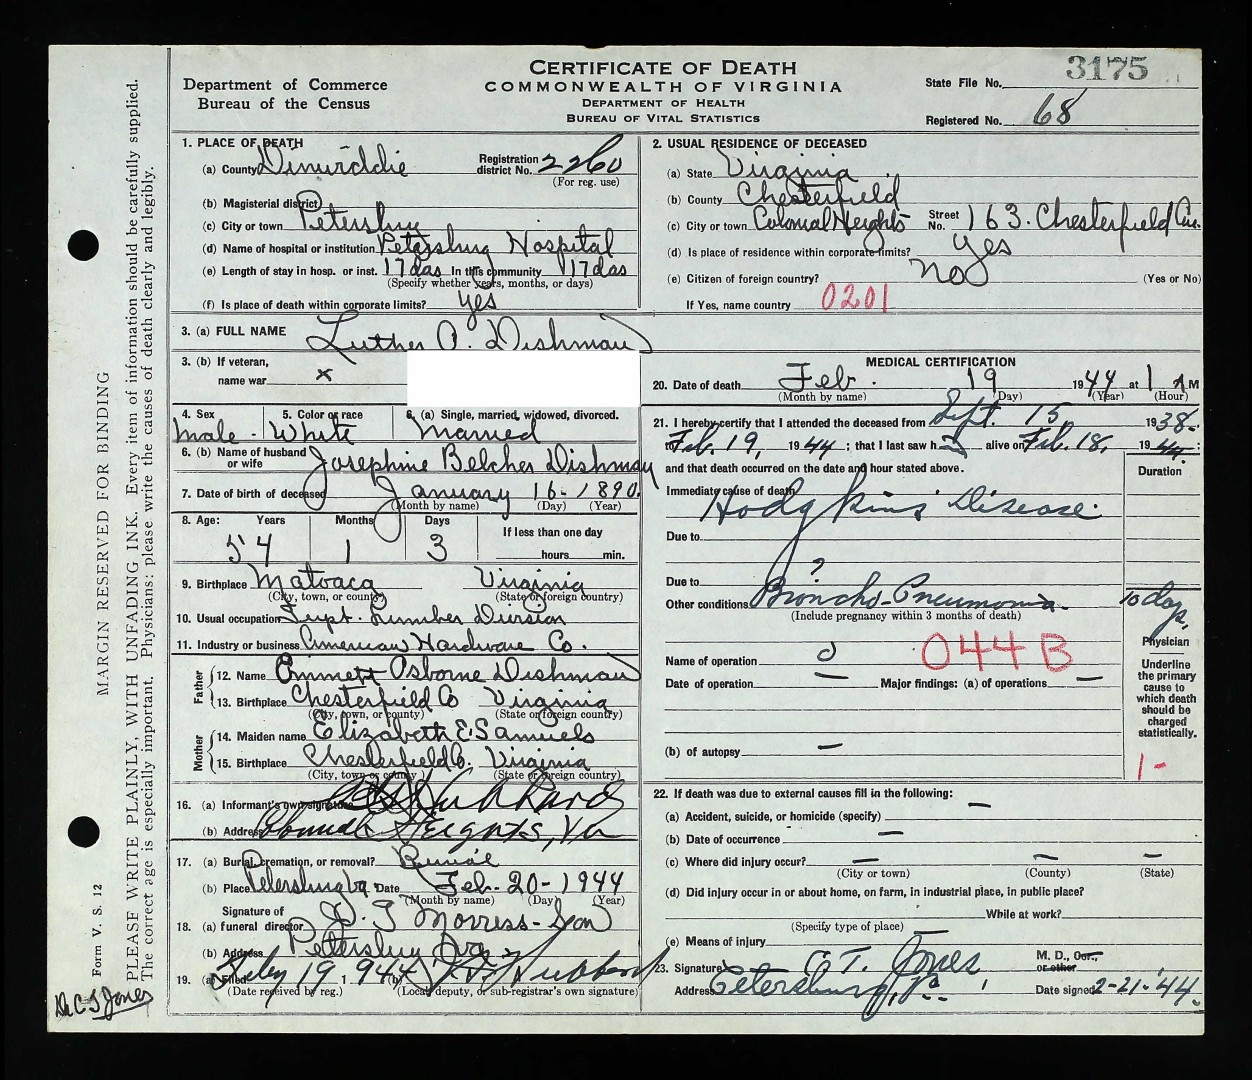 3175
CERTIFICATE OF DEATH
COMMONWEALTH OF VIRGINIA
DEPARTMENT OF HEALTH
BUREAU OF VITAL STATISTICS
Department of Commerce
Bureau of the Census
State File No.
Registered No. 68
1. PLACE OF DEATH
(a) County Dinwiddie Registration district No. 2260
(For reg. use)
(b) Magisterial district
(c) City or town Petersburg
(d) Name of hospital or institution Petersburg Hospital
(e) Length of stay in hosp. or inst. 17 das In this community 17 das
(Specify whether years, months, or days)
(f) Is place of death within corporate limits? yes
2. USUAL RESIDENCE OF DECEASED
(a) State Virginia
(b) County Chesterfield
(c) City or town Colonial Heights Street No. 163. Chesterfield Ave.
(d) Is place of residence within corporate limits? yes
(e) Citizen of foreign country? no (Yes or No)
If Yes, name country 0201
3. (a) FULL NAME Luther O. Dishman
3. (b) If veteran,
name war x
4. Sex 5. Color or race 6. (a) Single, married, widowed, divorced.
male - White Married
6. (b) Name of husband or wife Josephine Belcher Dishman
7. Date of birth of deceased January 16 - 1890.
(Month by name) (Day) (Year)
8. Age: Years Months Days If less than one day
54 1 3 hours min.
9. Birthplace Matoaca Virginia
(City, town, or county) (State or foreign country)
10. Usual occupation Supt. Lumber Division
11. Industry or business American Hardware Co.
Father
12. Name Emmett Osborne Dishman
13. Birthplace Chesterfield Co Virginia
(City, town, or county) (State or foreign country)
Mother
14. Maiden name Elizabeth E. Samuels
15. Birthplace Chesterfield Co. Virginia
(City, town or county) (State or foreign country)
16. (a) Informant's own signature Hubbard
(b) Address Colonial Heights, Va
17. (a) Burial, cremation, or removal? Burial
(b) Place Petersburg Va. Date Feb - 20 - 1944
(Month by name) (Day) (Year)
18. (a) Signature of funeral director J. T. Morriss - Son
(b) Address Petersburg, Va.
19. (a) Filed Feby 19 1944 (b) Hubbard
(Date received by reg.) (Local deputy, or sub-registrar's own signature)
MEDICAL CERTIFICATION
20. Date of death Feb. 19 1944 at 1 A M
(Month by name) (Day) (Year) (Hour)
21. I hereby certify that I attended the deceased from Sept. 15 1938.
to Feb. 19, 1944; that I last saw h alive on Feb. 18, 1944.
and that death occurred on the date and hour stated above.
Duration
Immediate cause of death Hodgkins Disease.
Due to
?
Due to
Other conditions Broncho-Pneumonia. 10 days.
(Include pregnancy within 3 months of death)
044B
Name of operation
Date of operation — Major findings: (a) of operations —
(b) of autopsy —
Physician
Underline
the primary
cause to
which death
should be
charged
statistically.
1 -
22. If death was due to external causes fill in the following:
(a) Accident, suicide, or homicide (specify) —
(b) Date of occurrence —
(c) Where did injury occur? — — —
(City or town) (County) (State)
(d) Did injury occur in or about home, on farm, in industrial place, in public place?
While at work?
(Specify type of place)
(e) Means of injury
23. Signature C. T. Jones M. D., Cor. or other
Address Petersburg, Va. Date signed 2-21-44.
MARGIN RESERVED FOR BINDING
PLEASE WRITE PLAINLY, WITH UNFADING INK. Every item of information should be carefully supplied.
The correct age is especially important. Physicians: please write the causes of death clearly and legibly.
Form V. S. 12
Dr. C T Jones